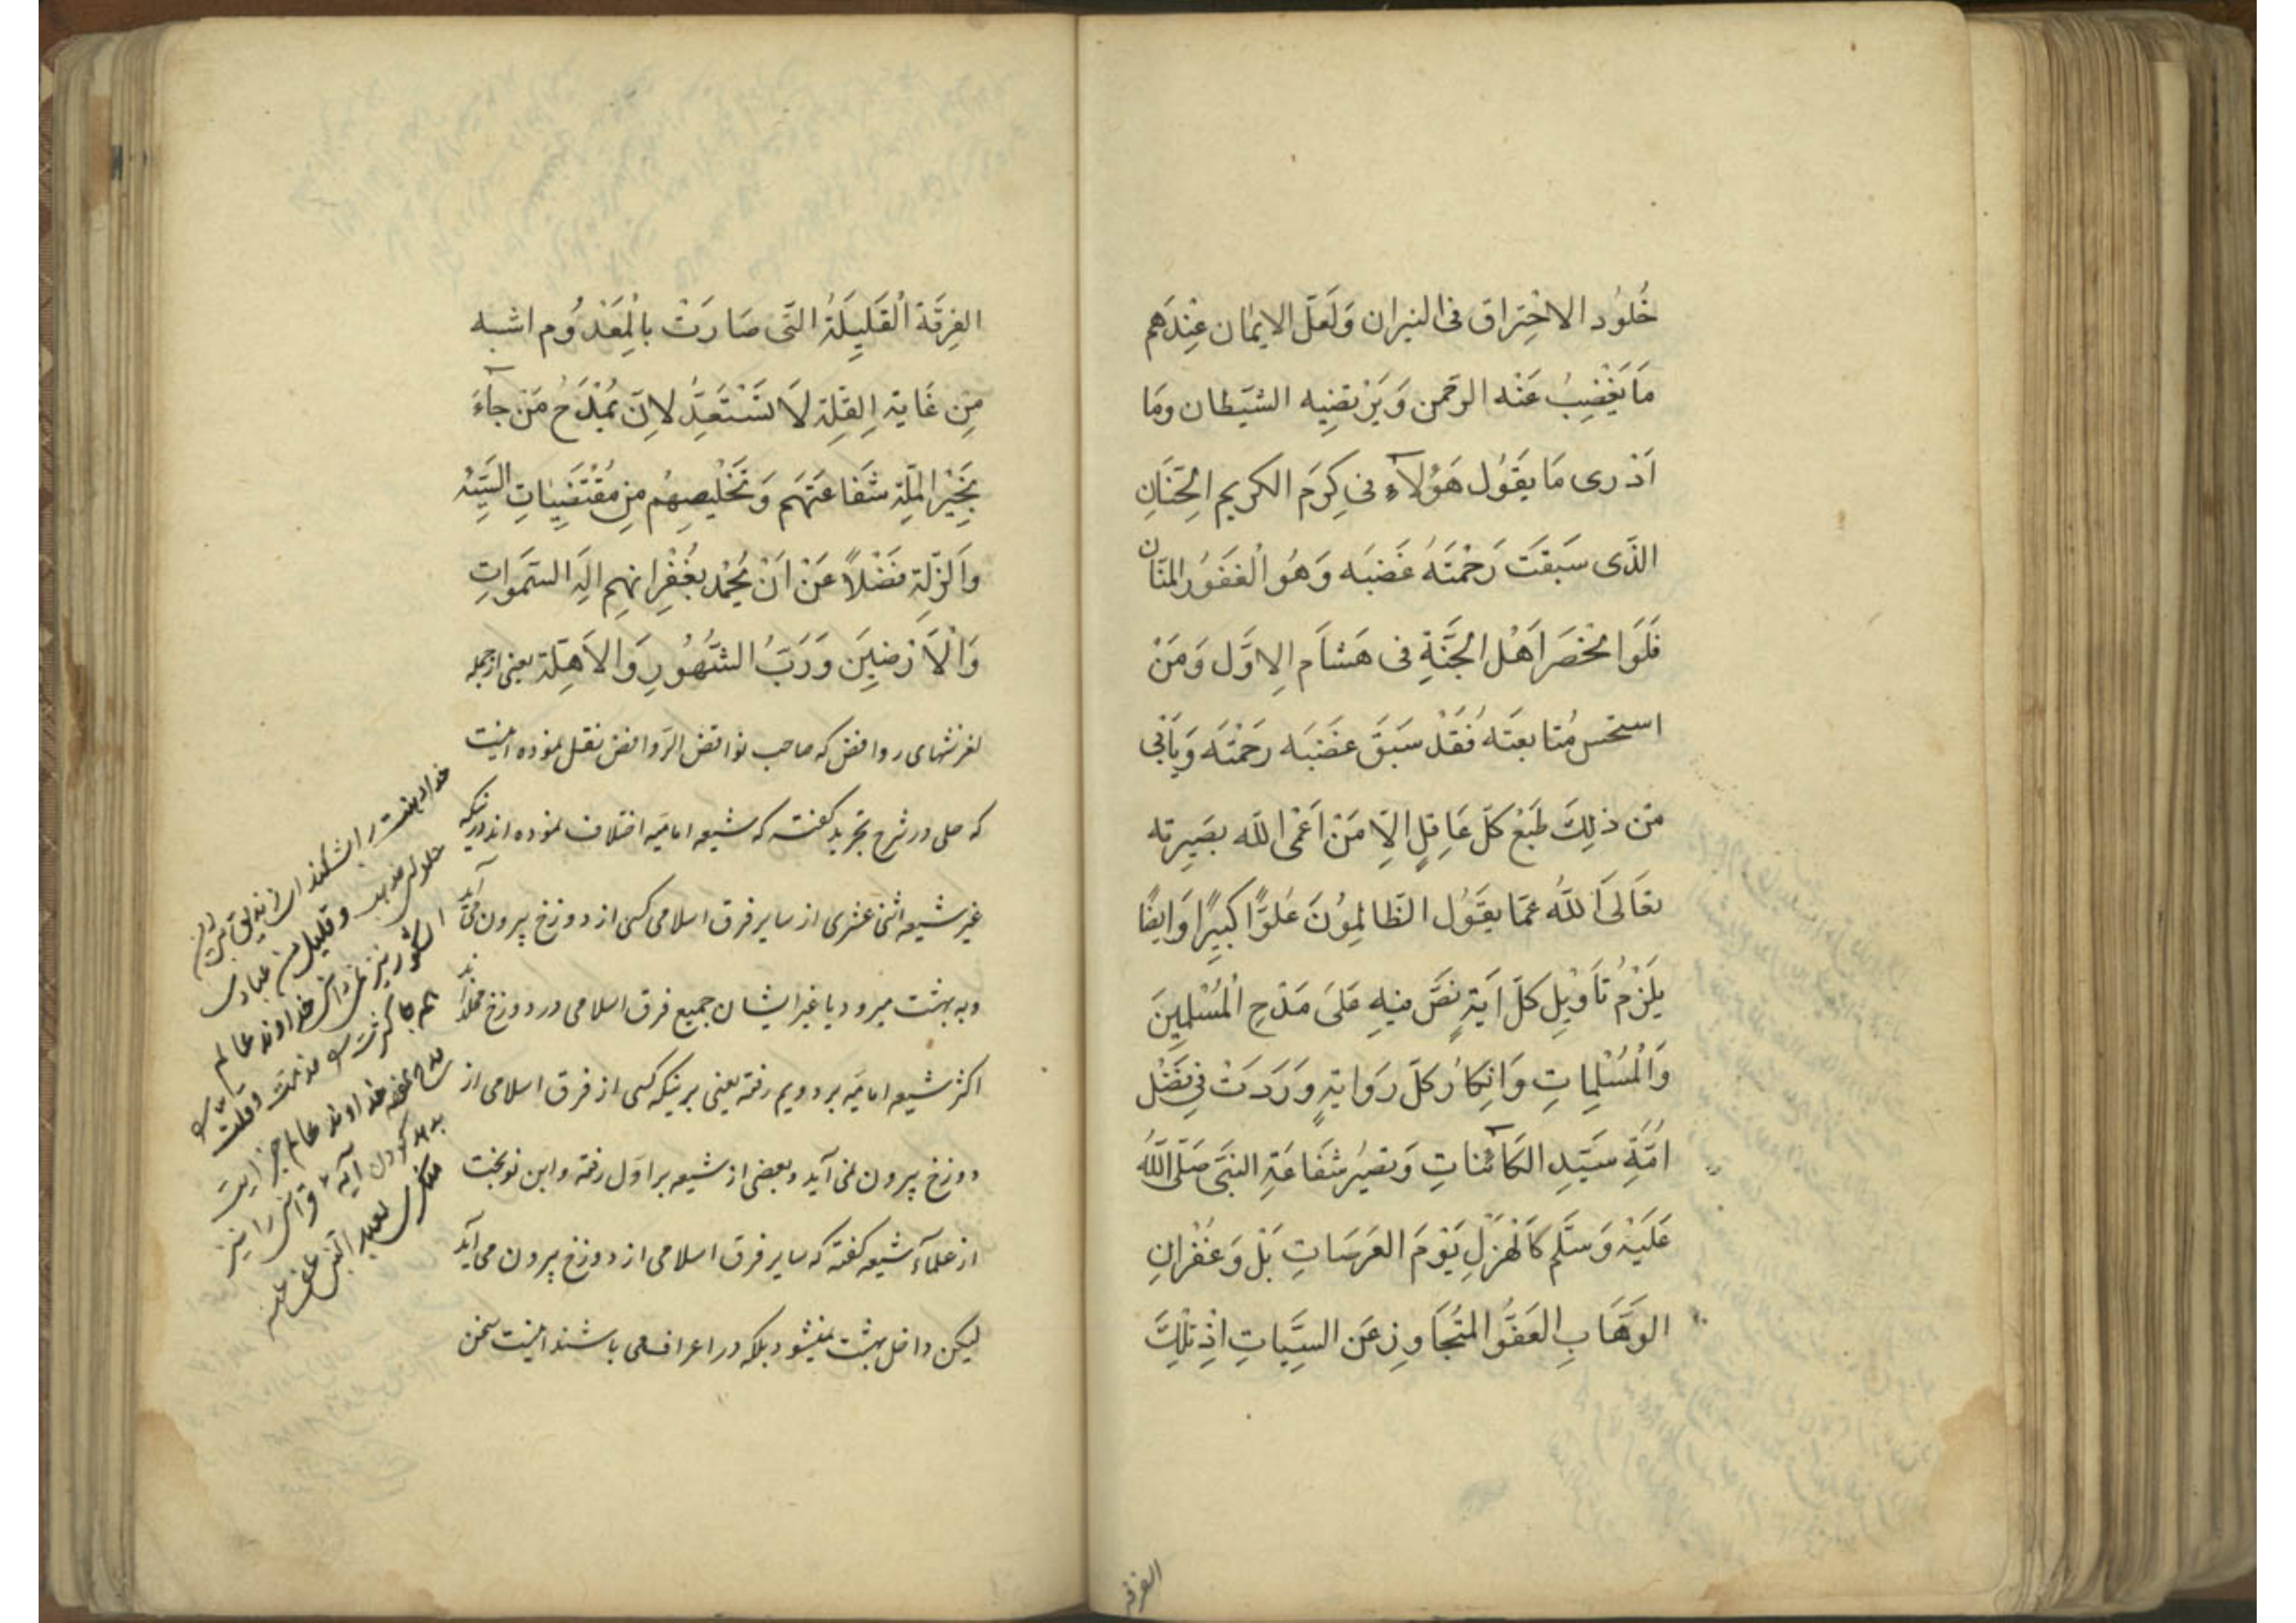 خُلُود الاحْتِراق فى النيران وَلَعَلّ الايمٰان عِنْدَهم
مَا يَغْضِبُ عَنْه الرحمن وَيَرْتضِيه الشيَطان ومَا
اَدْرى مَا يَقَوُل هَؤُلآءِ فى كِرَم الكريم الحَنّانِ
الذَى سَبَقَت رَحْمَتَهُ غَضبَه وَهُو الْغَفَوُر المَنّان
فَلَوا نْحَصَر اَهْل الجَنَّةِ فى هَشام الِاوَّل وَمَنْ
استحسن مُتابعَتَه فَقَدْ سَبَقَ غضَبَه رَحْمَتَه وَيَأبٰى
مّن ذلِكَ طَبْعُ كلّ عَاقِلٍ الِاّ مَنْ اَعْمَى اللّه بصَيِرته
تعَالَى اللهُ عَمّا يقَوُل الظّالمِوُنَ عُلوًّا كبيِرًا وَايضًا
يلَزْمُ تأوْيِل كلّ ايَةٍ نصَّ فيهِ عَلىَ مَدْحِ الْمُسْلِميِنَ
وَالْمُسْلِماتِ وَانِكارُ كلّ رَوايةٍ وَرَدَتْ فِى فَضْل
امَّةِ سَيّدِ الكآئناتِ وَيصَيُر شفَاعَةِ النبَّى صَلّى اللهُ
عَليَهْ وَسَلّم كَالْهَزْلِ يَوْمَ العَرَصَاتِ بَلْ وَغفْرانِ
الوَهّابِ العَفوُّ المتَجُاوِزِ عَن السيِّئاتِ اذِ تلْكَ
الفرقه
الفِرقَة اْلقَليِلَةُ التّى صَارَتْ باِلْمَعْدُوُم اشبه
مِن غَايةِ القِلةِ لاَ تسَتَعِدُّ لاِنَ يُمْدَحُ مَنْ جآءَ
بِخَيْر المَلّةِ شَفاعَتهَم وَتَخْليِصهِمُ مِن مُقْتَضِيٰاتِ السَيّئِه
وَالزّلّةِ فضْلًا عَنْ اَنْ يُحْمَد بغُفْرانهِم الَه السّمَواتِ
وَالْاَرْضيِنَ وَرَبّ الشّهُوُرِ وَالاَهلّة يعنى ازجمله
لغزشهاى روافض كه صاحب نواقض الروافض نقل نموده اينست
كه حلى در شرح تجريد گفته كه شيعه اماميه اختلاف نموده اند در اينكه
غير شيعه اثنى عشرى از ساير فرق اسلامى كسى از دوزخ بيرون مى آيد
و به بهشت ميرود يا غير ايشان جميع فرق اسلامى در دوزخ مخلد اند
اكثر شيعه اماميه بر دويم رفته يعنى بر اينكه كسى از فرق اسلامى از
دوزخ بيرون نمى آيد و بعضى از شيعه بر اول رفته و ابن نوبخت
از علمآء شيعه گفته كه ساير فرق اسلامى از دوزخ بيرون مى آيد
ليكن داخل بهشت نميشود بلكه در اعراف مى باشند اينست سخن
وقليل من عبادى
الشكور
خداوند عالم
آيه قرانى را نيز